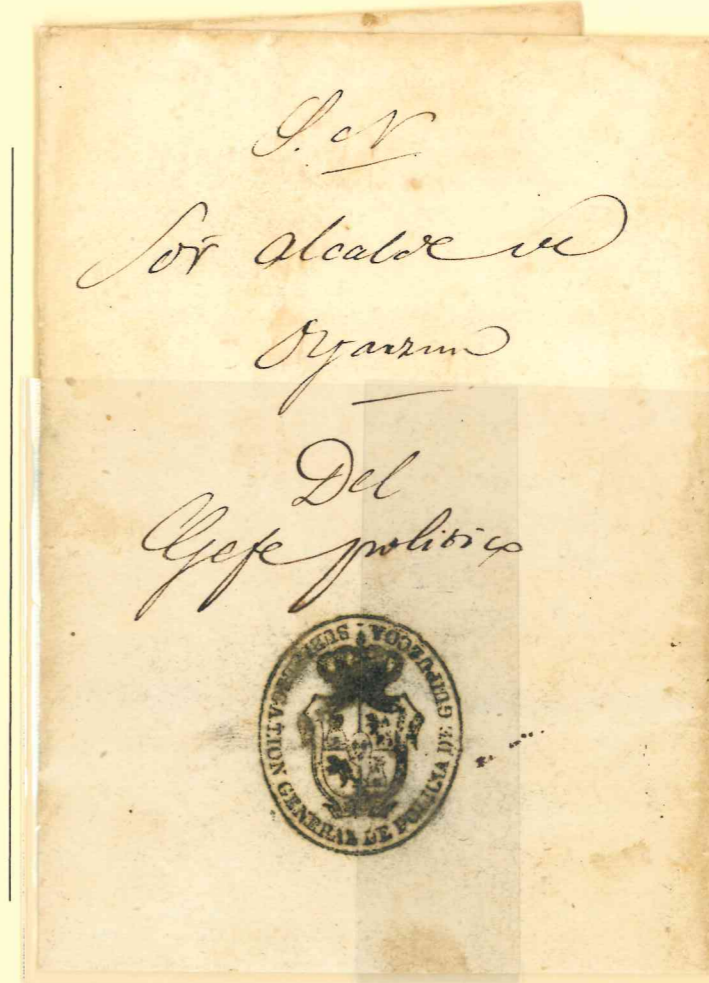 S. N
Sor alcalde de
Oyarzun
Del
Gefe politico
SUBDELEGATION GENERAL DE POLICIA DE GUIPUZCOA